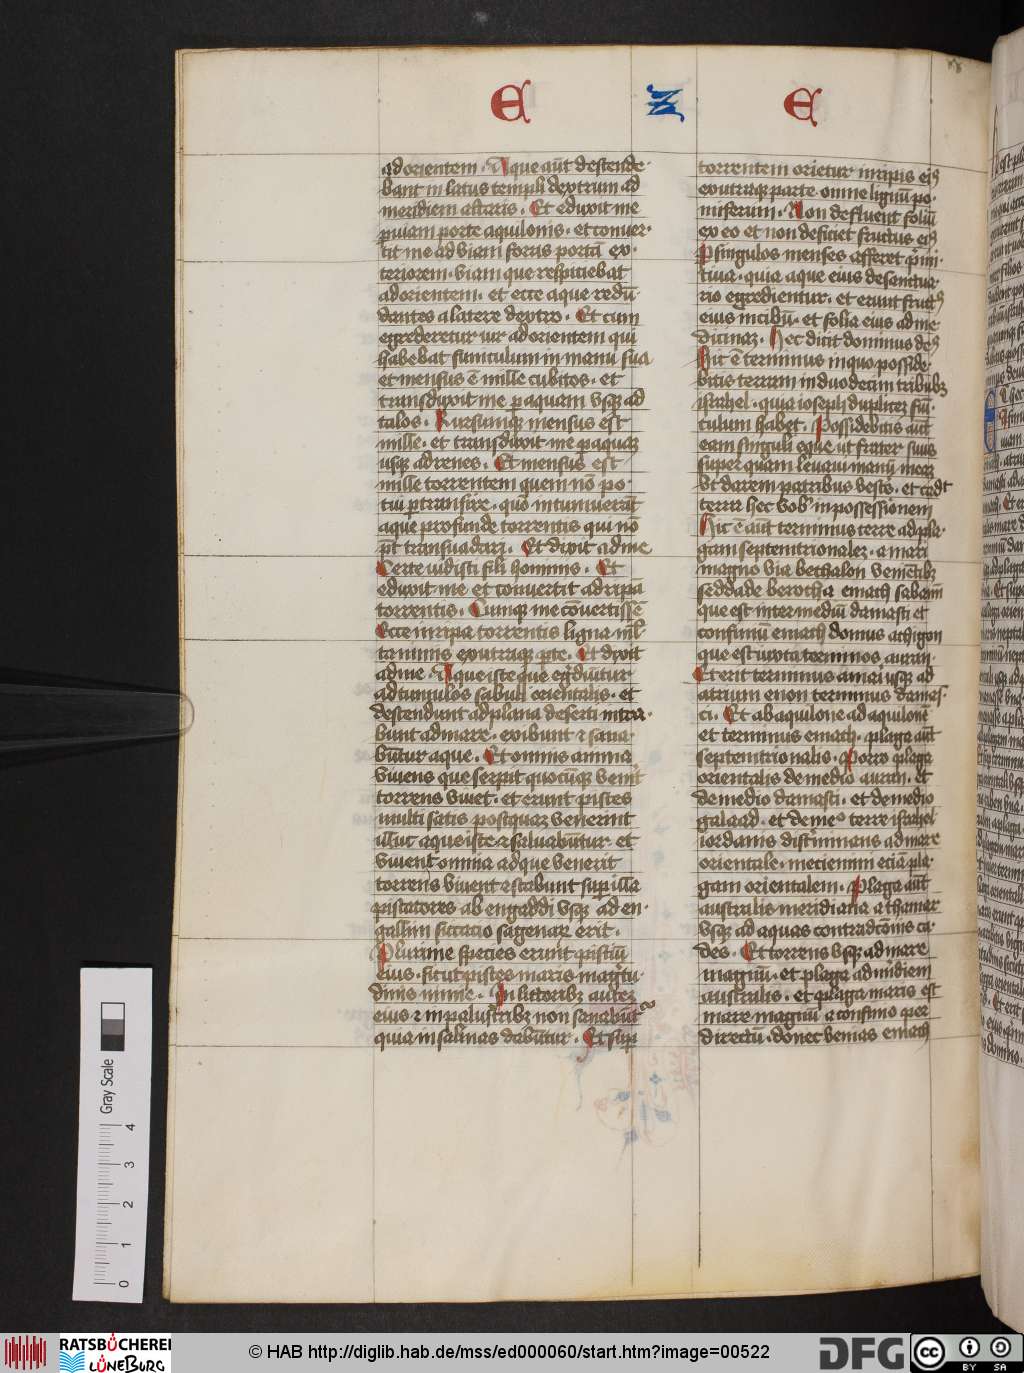 E z E
ad orientem . Aque aūt descende·
bant in latus templi dextrum ad
meridiem altaris . Et eduxit me
p̱ uiam porte aquilonis . et conuer·
tit me ad viam foras portā ex·
teriorem . viam que respiciebat
ad orientem . et ecce aque redū·
dantes a latere dextro . Et cum
egrederetur vir ad orientem qui
habebat funiculum in manu sua
et mensus ē mille cubitos . et
transduxit me p̱ aquam vsqꝫ ad
talos . Rursumqꝫ mensus est
mille . et transduxit me p̱ aquaꝫ
usqꝫ ad renes . Et mensus est
mille torrentem quem nō po·
tui p̱transire . quō intumuerāt
aque profunde torrentis qui nō
pōt transuadari . Et dixit ad me
Certe uidisti fili hominis . Et
eduxit me et conuertit ad ripā
torrentis . Cumqꝫ me cōuertissē
Ecce in ripa torrentis ligna ml̄·
ta nimis ex utraqꝫ p̱te . Et dixit
ad me . Aque iste que egrediūtur
ad tumulos sabuli orientalis . et
descendunt ad plana deserti intra·
bunt ad mare . exibunt ⁊ sana·
būtur aque . Et omnis anima
viuens que serpit quocūqꝫ venīt
torrens viuet . et erunt pisces
multi satis postquaꝫ venerint
illuc aque iste ⁊ saluabūtur et
viuent omnia ad que venerit
torrens viuent ⁊ stabunt sup̱ illa
piscatores ab engaddi vsqꝫ ad en·
gallim siccatio sagenaꝝ erit .
Plurime species erunt pisciū
eius . sicut pisces maris magītu·
dinis nimie . In littoribꝫ auteꝫ
eius ⁊ in palustribꝫ non sanabūt
quia in salinas dabūtur . Et sup̱
torrentem orietur in ripis eiꝰ
ex utraqꝫ parte omne lignū po·
miferum . Non defluent foliū
ex eo et non deficiet fructus eiꝰ
P̱ singulos menses afferet p̄mi·
tiua . quia aque eius de sanctua·
rio egredientur . et erunt fructꝰ
eius in cibū . et folia eius ad me
dicinaꝫ . Hec dicit dominus deꝰ
Hic ē terminus in quo posside·
bitis terram in duodecim tribubꝫ
israhel . quia ioseph dupliceꝫ fūi·
culum habet . Possidebitis aūt
eam singuli eque ut frater suus
super quam leuaui manū meaꝫ
Vt darem patribus vestris . et cadet
terra hec vobꝰ in possessionem
Hic ē aūt terminus terre ad pla·
gam septentrionaleꝫ . a mari
magno via bethalon venietibꝫ
seddade berotha emath sabarim
que est inter mediū damasci et
confiniū emath domus athigon
que est iuxta terminos auran·
Et erit terminus a mari usqꝫ ad
atrium enon terminus damas·
ci . Et ab aquilone ad aquilonē
et terminus emath . plaga aūt
septentrionalis . Porro plaga
orientalis de medio auran . et
de medio damasci . et de medio
galaad . et de me° terre israhel
iordanis discrīminans ad mare
orientale . metiemini eciā pla·
gam orientalem . Plaga aūt
australis meridiana a thamar
vsqꝫ ad aquas contradcōnis ca·
des . Et torrens vsqꝫ ad mare
magnū . et plaga ad mīdiem
australis . et plaga maris est
mare magnū a confinio per
directū . donec venias emath
Gray Scale
0 1 2 3 4
RATSBÜCHEREI LÜNEBURG
© HAB http://diglib.hab.de/mss/ed000060/start.htm?image=00522
DFG
cc BY SA